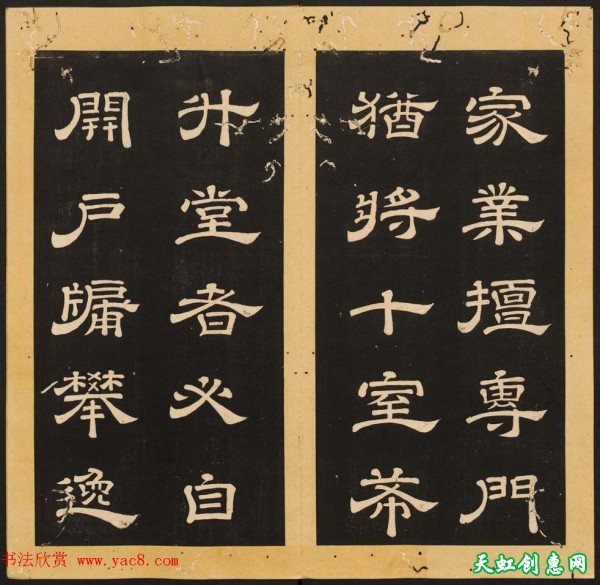 家業擅專門
猶將十室
升堂者必自
開戶牖攀逸
书法欣赏 www.yac8.com
天虹创惠网